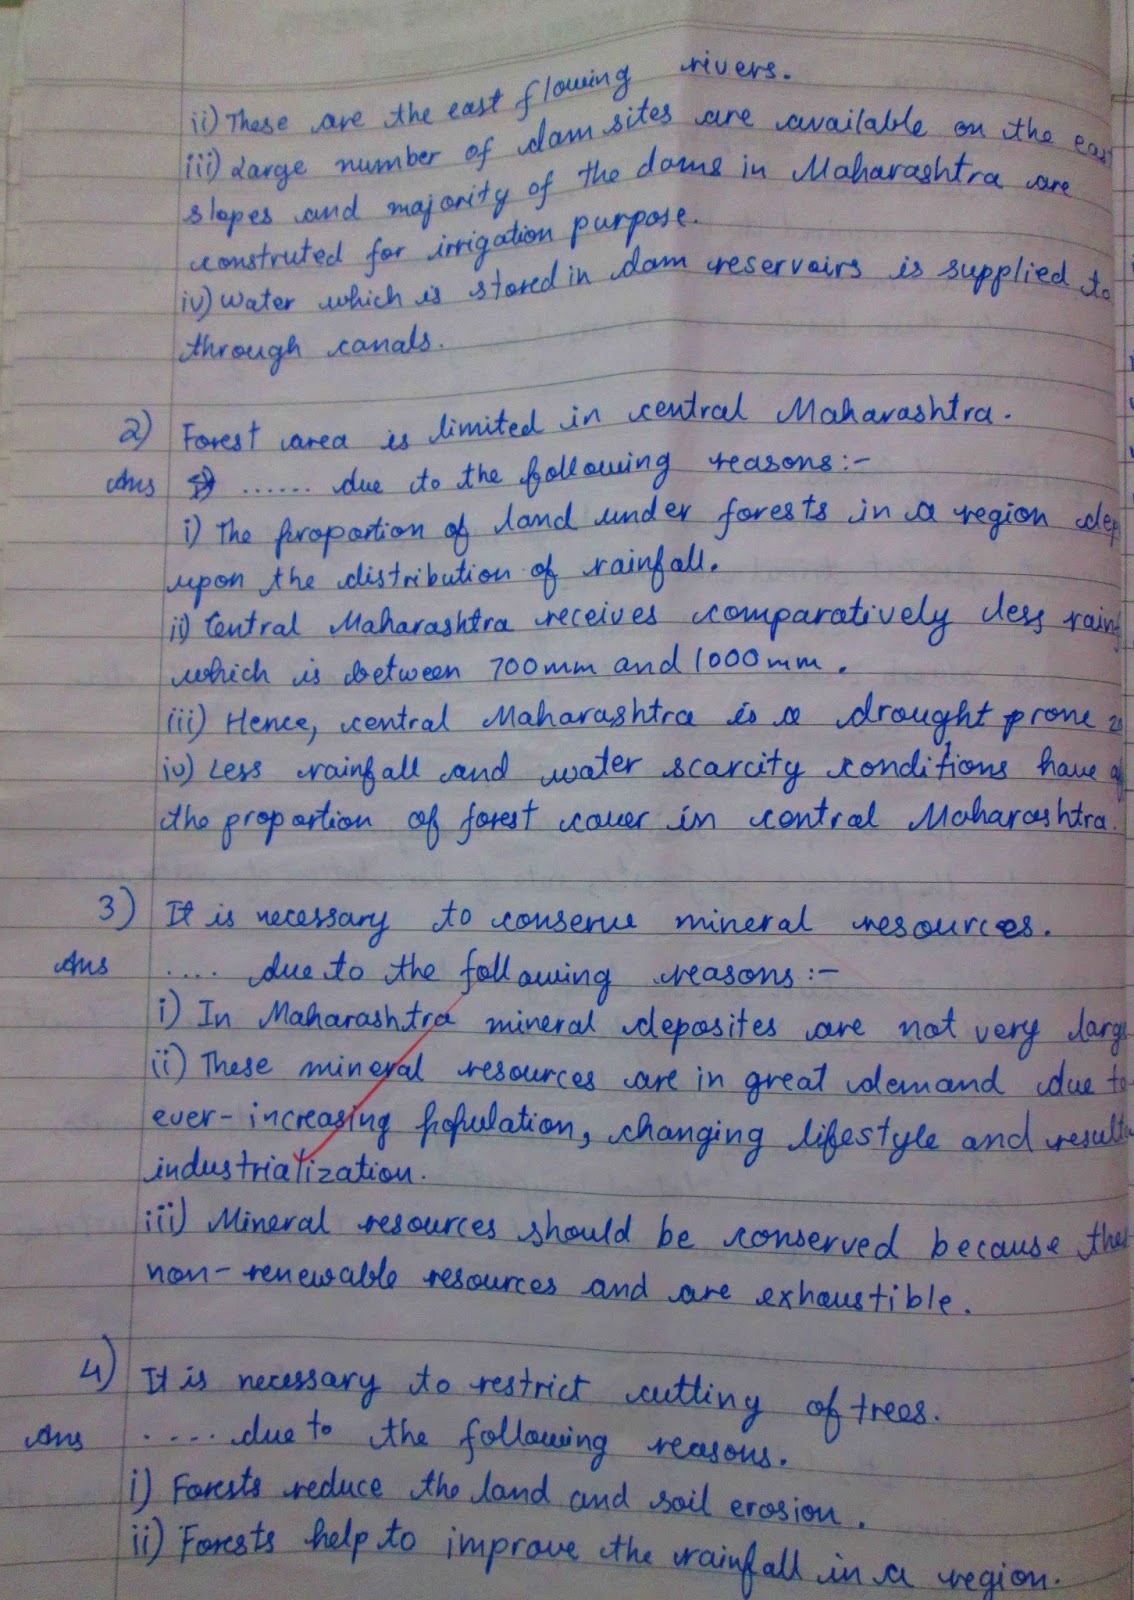 ii) These are the east flowing rivers.
iii) Large number of dam sites are available on the east
slopes and majority of the dams in Maharashtra are
construted for irrigation purpose.
iv) Water which is stored in dam reservoirs is supplied to
through canals.
2) Forest area is limited in central Maharashtra.
Ans ...... due to the following reasons:-
i) The proportion of land under forests in a region dep
upon the distribution of rainfall.
ii) Central Maharashtra receives comparatively less rainf
which is between 700mm and 1000mm.
iii) Hence, central Maharashtra is a drought prone
iv) Less rainfall and water scarcity conditions have
the proportion of forest cover in central Maharashtra.
3) It is necessary to conserve mineral resources.
Ans .... due to the following reasons:-
i) In Maharashtra mineral deposites are not very large
ii) These mineral resources are in great demand due to
ever-increasing population, changing lifestyle and result
industrialization.
iii) Mineral resources should be conserved because
non-renewable resources and are exhaustible.
4) It is necessary to restrict cutting of trees.
Ans .... due to the following reasons.
i) Forests reduce the land and soil erosion.
ii) Forests help to improve the rainfall in a region.